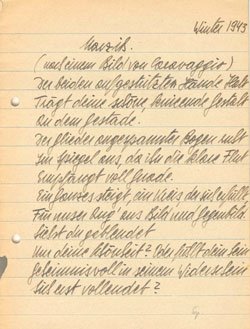 Winter 1943
Narziß.
(nach einem Bild von Caravaggio)
Der beiden aufgestützten Hände Halt
Trägt deine schöne knieende Gestalt
An dem Gestade.
Der Glieder angespannter Bogen ruht
Im Spiegel aus, da ihn die klare Flut
Empfängt voll Gnade.
Ein Ganzes steigt, ein Kreis, der sich erfüllt,
Für unser Aug' aus Bild und Gegenbild
Siehst du geblendet
Nur deine Schönheit? Oder fühlt dein Sein
geheimnisvoll in seinem Widerschein
sich erst vollendet?